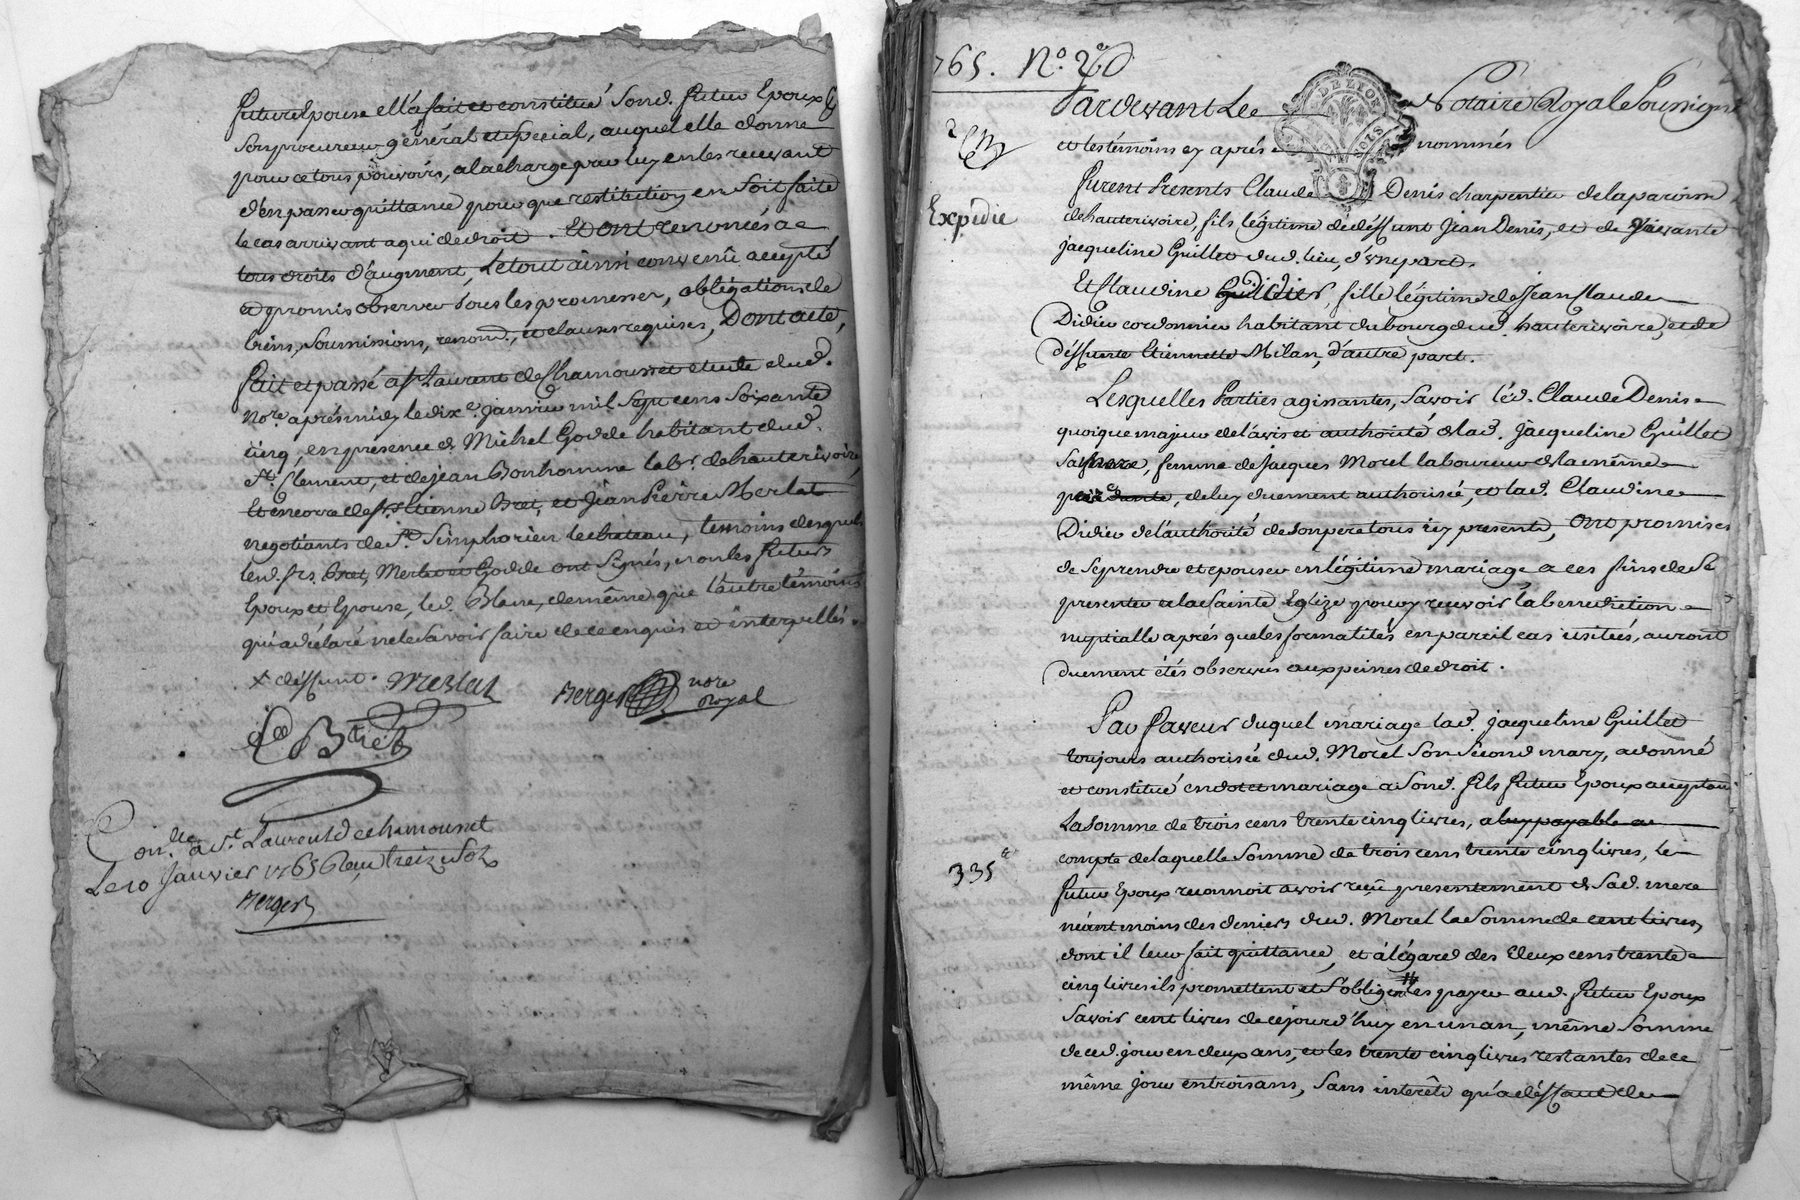 future Epouse ell'a fait et constitué Sond. futur Epoux
Son procureur général et spécial, auquel elle donne
pour ce tous pouvoirs, a la charge par luy en les recevant
d'en passer quittance pour que restitution en soit faite
le cas arrivant a qui de droit. Et ont renoncés a
tous droits d'augment, Le tout ainsi convenu accepté
et promis observer sous les promesses, obligations de
biens, soumissions, renond., et clauses requises, Dont acte,
fait et passé a St Laurent de Chamousset etude dud.
Nore. aprés midy le dixe. janvier mil Sept cens Soixante
cinq, en presence de Michel Godde habitant dud.
St. Clement, et de jean Bonhomme labr. de hauterivoire,
et encore de srs. Etienne Bret, et Jean Pierre Merlat
negotiants de St. Simphorien le chateau, temoins desquels
lesd. srs. Bret, Merlat et Godde ont Signés, non les futurs
Epoux et Epouse, led. Blanc, de même que l'autre témoins
qui a déclaré ne le Savoir faire de ce enquis et interpellés.
x deffunt. Merlat
Berger nore Royal
Bret
Conlle. a St. Laurent de chamousset
Le 10 Janvier 1765 Reçu treize Sols
Berger
765. No. 2
Expedie
Pardevant Le Notaire Royal Soussigné
et les témoins cy aprés nommés
furent Presents Claude Denis charpentier de la paroisse
de hauterivoire, fils légitime de déffunt Jean Denis, et de vivante
jacqueline Guillet dud. lieu, d'une part.
Et Claudine Didier, fille légitime de Jean Claude
Didier cordonnier habitant du bourg dud. hauterivoire, et de
déffunte Etiennette Milan, d'autre part.
Lesquelles Parties agissantes, Savoir led. Claude Denis
quoique majeur de l'avis et authorité de lad. Jacqueline Guillet
Sa mere, femme de Jacques Morel laboureur de la même
de luy duement authorisée, et lad. Claudine
Didier de l'authorité de Son pere tous icy presents, Ont promis
de Se prendre et epouser en légitime mariage a ces fins de Se
presenter a la Sainte Eglize pour y recevoir la benediction
nuptialle aprés que les formalités en pareil cas usitées, auront
duement étés observées aux peines de droit.
En faveur duquel mariage lad. Jacqueline Guillet
toujours authorisée dud. Morel Son Second mary, a donné
et constitué en dot et mariage a Sond. fils futur Epoux acceptant
La Somme de trois cens trente cinq livres, a luy payable a
compte de laquelle Somme de trois cens trente cinq livres, le
335
futur Epoux reconnoit avoir reçu presentement de Sad. mere
néantmoins des deniers dud. Morel la Somme de cent livres,
dont il leur fait quittance, et a l'égard des deux cens trente
cinq livres ils promettent et S'obligent les payer aud. futur Epoux
Savoir cent livres de ce jourd'huy en un an, même Somme
de ced. jour en deux ans, et les trente cinq livres restantes de ce
même jour en trois ans, Sans interêts qu'a déffaut de